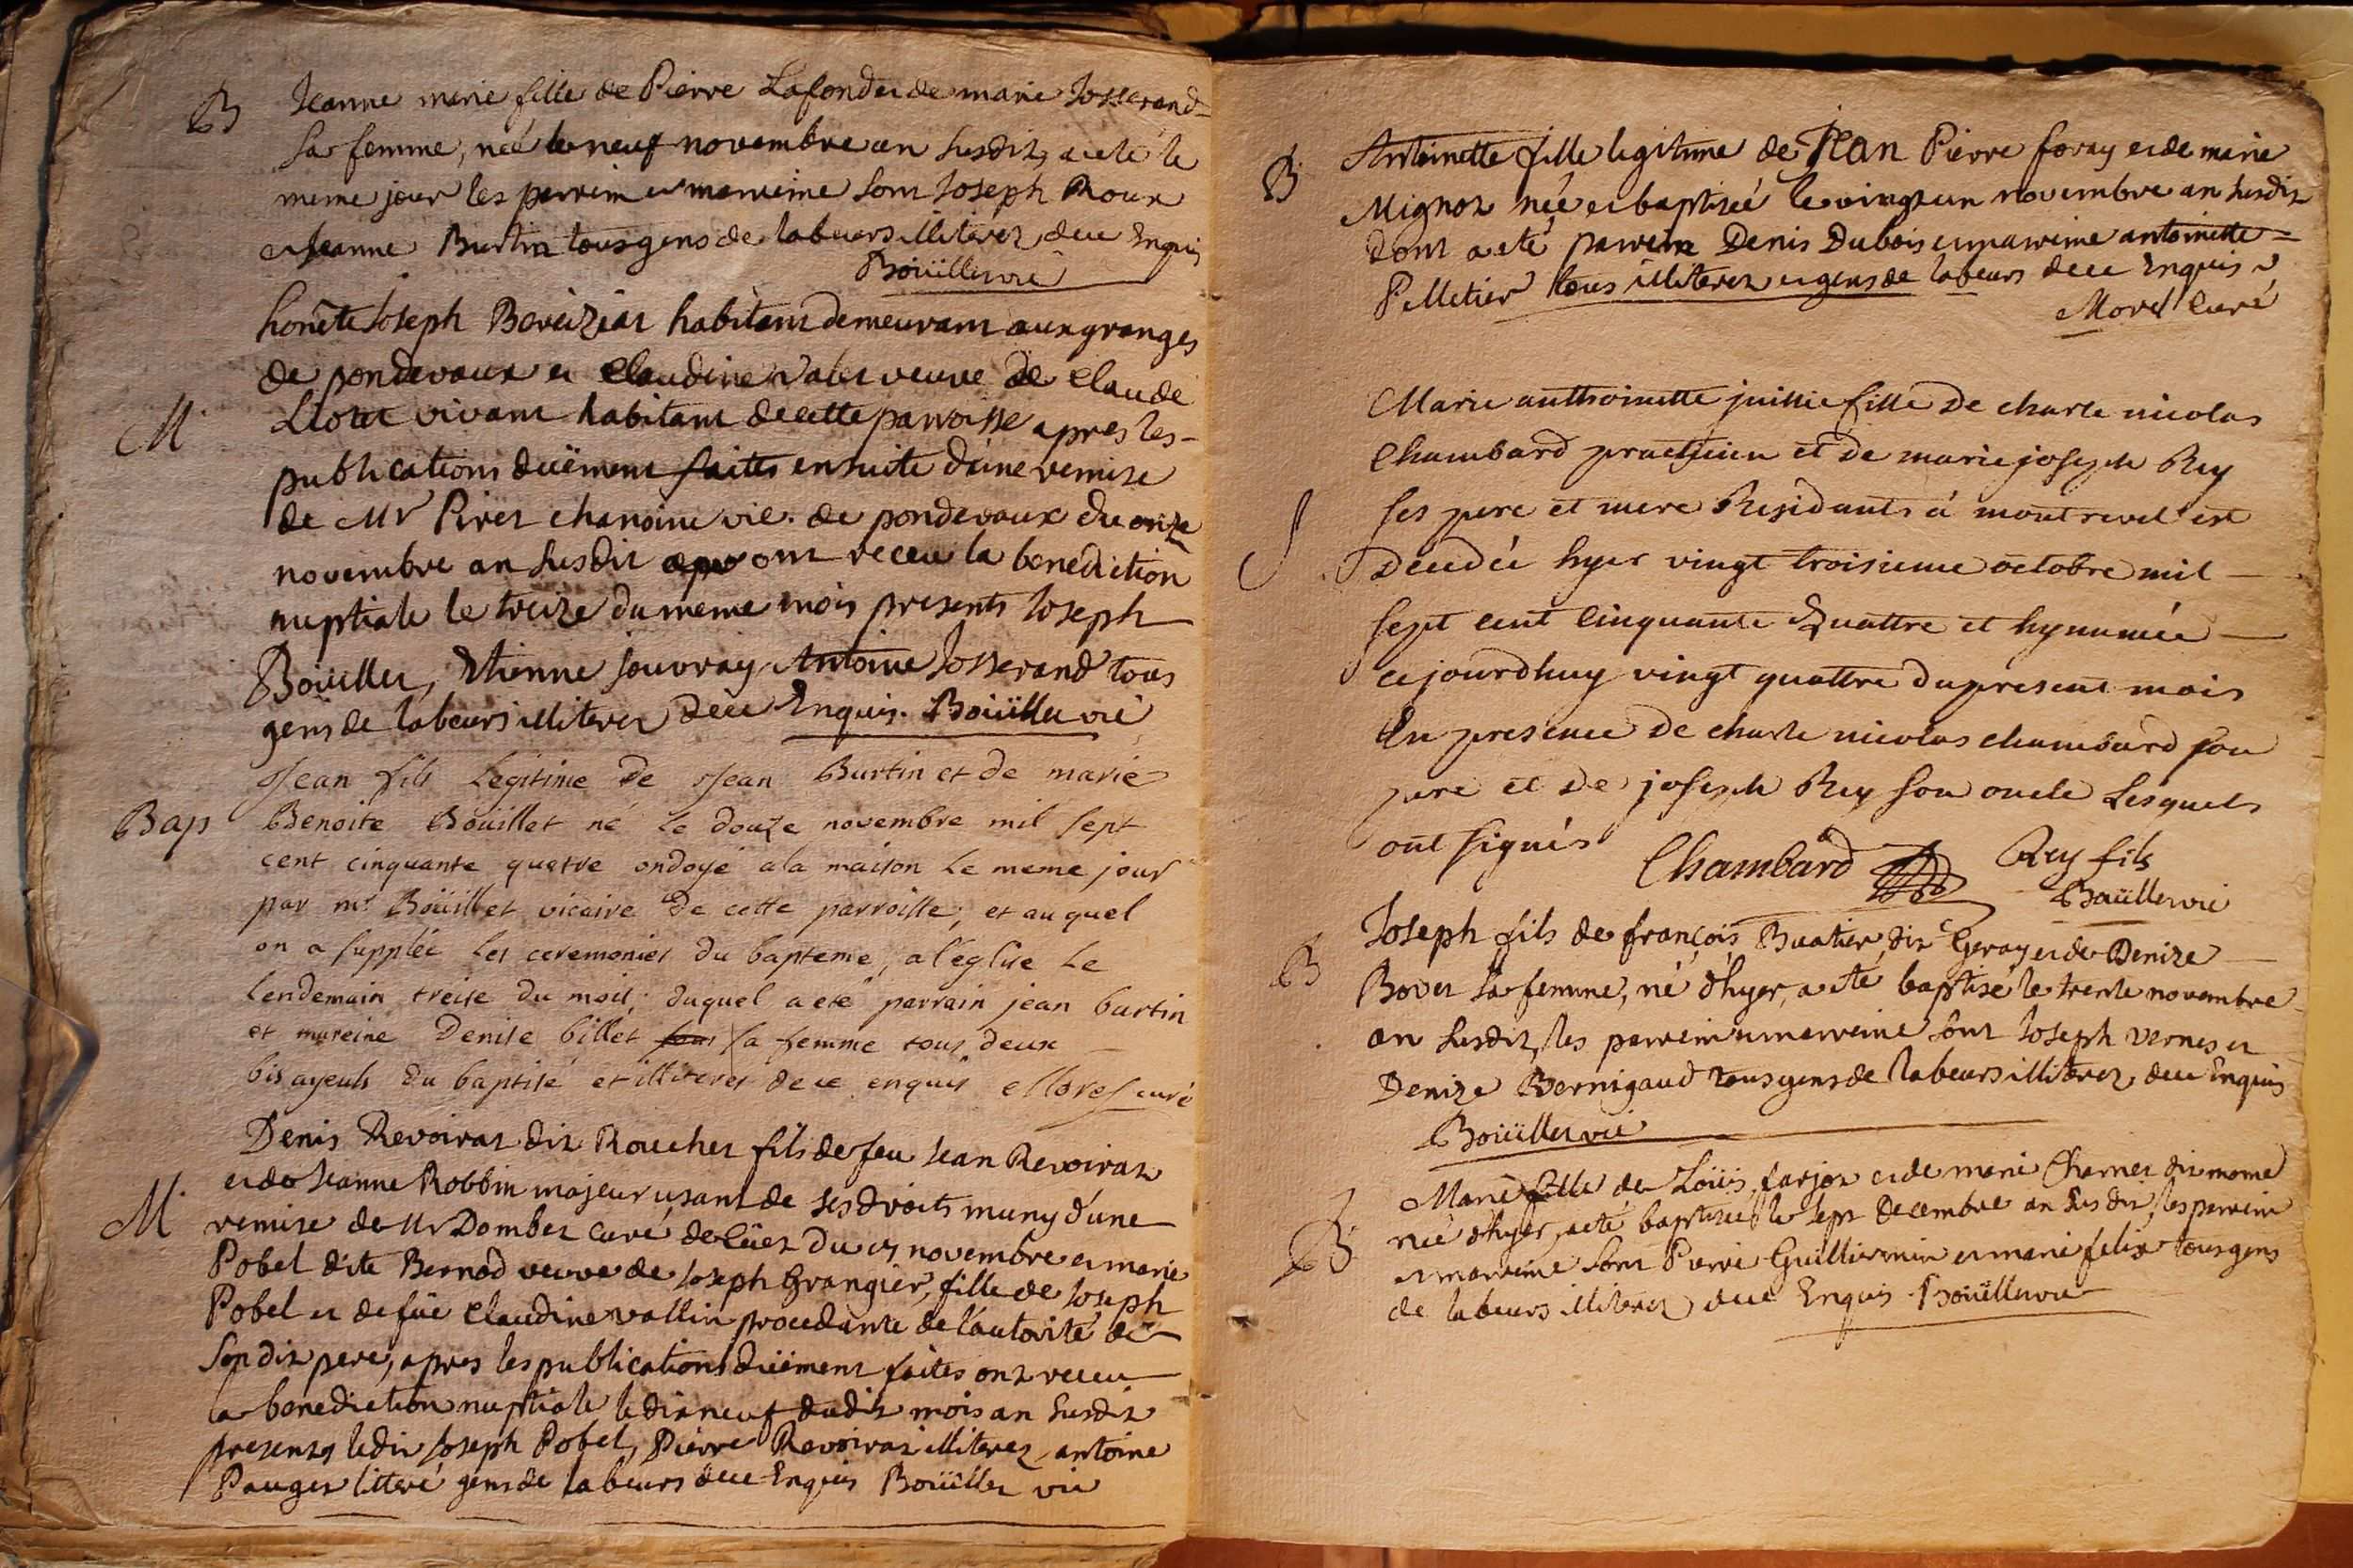 B
Jeanne marie fille de Pierre Lafond et de marie Josserand
sa femme, née le neuf novembre an susdit, a eté le
meme jour les parrein et marreine sont Joseph Roux
et Jeanne Burtin tous gens de labeurs illiterez de ce Enquis
Boüillet vic
M.
honête Joseph habitant demeurant aux granges
de pondevaux et Claudine veuve de Claude
vivant habitant de cette parroisse apres les
publications duëment faites ensuite d'une remise
de Mr chanoine vic. de pondevaux du onze
novembre an susdit ont receu la benediction
nuptiale le treize du meme mois presents Joseph
Boüillet, Etienne Antoine Josserand tous
gens de labeurs illiterez de ce Enquis. Boüillet vic
Bap
Jean fils Legitime de Jean Burtin et de marie
Benoite Boüillet né Le douze novembre mil sept
cent cinquante quatre ondoyé a la maison Le meme jour
par mr Boüillet vicaire de cette parroisse, et au quel
on a supplée Les ceremonies du bapteme, a l'eglise Le
Lendemain treise du mois; duquel a eté parrain jean burtin
et mareine Denise billet sa femme tous deux
bis ayeuls du baptisé et illiterés de ce enquis Morel curé
M.
Denis Revoirat dit Rouchet fils de feu Jean Revoirat
et de Jeanne Robbin majeur usant de ses droits muny d'une
remise de Mr Dombet curé de du 17 novembre et marie
Pobel dite Bernod veuve de Joseph Grangier, fille de Joseph
Pobel et de füe Claudine vallin procedante de l'autorité de
son dit pere, apres les publications duëment faites ont receu
la benediction nuptiale le dix neuf dudit mois an susdit
presents ledit Joseph Pobel, Pierre Revoirat illiterez, antoine
Pauget litteré gens de labeurs de ce Enquis Boüillet vic
B.
Antoinette fille legitime de Jean Pierre foray et de marie
Mignot née et baptisée le vingt un novembre an susdit
dont a eté parrein Denis Dubois et marreine antoinette
Pelletier tous illiterez et gens de labeurs de ce Enquis
Morel Curé
S.
Marie anthoinette fille De charle nicolas
Chambard practicien et de marie joseph Rey
ses pere et mere Residants à montrevel est
Decedée hyer vingt troisieme octobre mil
sept cent Cinquante Quattre et hynumée
cejourdhuy vingt quattre du present mois
En presence De charle nicolas chambard son
pere et De joseph Rey son oncle Lesquels
ont signés
Chambard Rey fils
Boüillet vic
B
Joseph fils de françois Buatier dit Geray et de Denize
Bovet sa femme, né d'hyer, a eté baptisé le trente novembre
an susdit, les parrein et marreine sont Joseph vernes et
Denize Bernigaud tous gens de labeurs illiterez, de ce Enquis
Boüillet vic
B.
Marie fille de Loüis farjot et de marie Charnet dit mome
née d'hyer, a eté baptisée le sept Decembre an susdit, les parrein
et marreine sont Pierre Guillermin et marie felix tous gens
de labeurs illiterez de ce Enquis. Boüillet vic